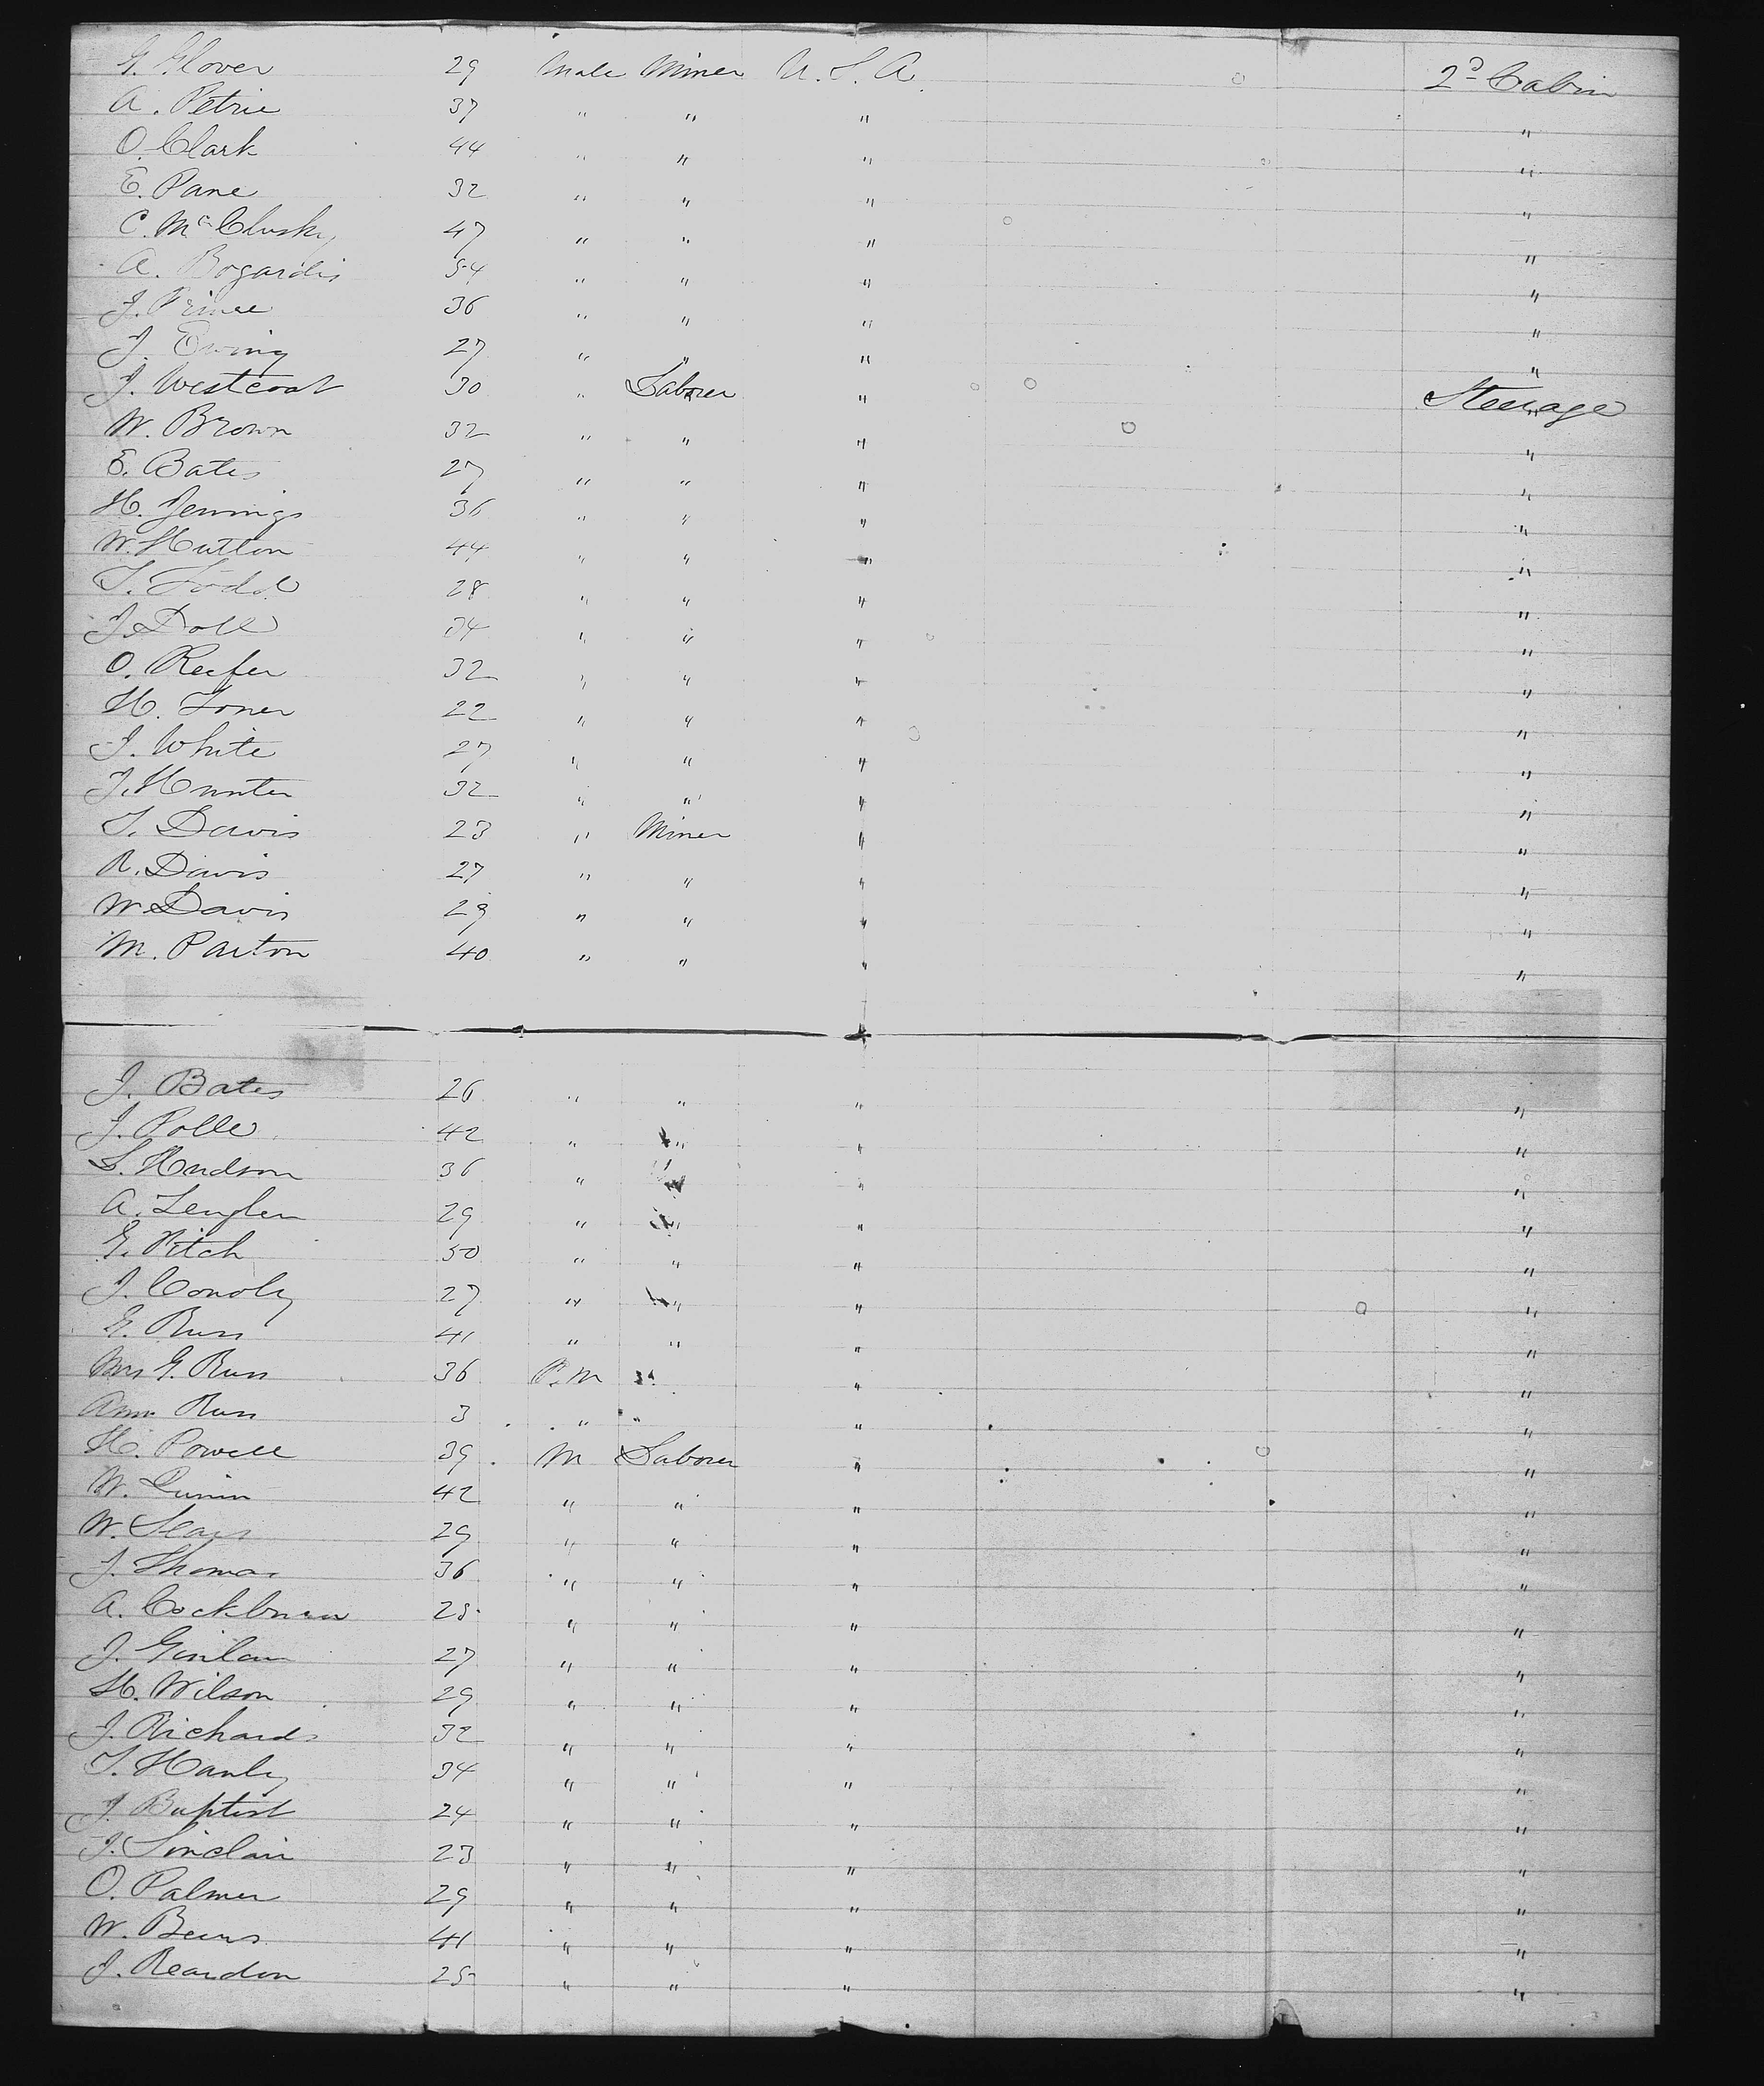 G. Glover 29 Male Miner U.S.A. 2d Cabin
A. Petrie 37 " " " "
O. Clark 44 " " " "
E. Pane 32 " " " "
C. McClusky 47 " " " "
A. Bogardis 54 " " " "
J. Prince 36 " " " "
J. Ewing 27 " " " "
J. Westcoat 30 " Laborer " Steerage
W. Brown 32 " " " "
E. Bates 27 " " " "
H. Jennings 36 " " " "
W. Hutton 44 " " " "
T. Todd 28 " " " "
J. Doll 34 " " " "
O. Reefer 32 " " " "
H. Toner 22 " " " "
J. White 27 " " " "
J. Hunter 32 " " " "
T. Davis 23 " Miner " "
R. Davis 27 " " " "
W. Davis 29 " " " "
M. Parton 40 " " " "
J. Bates 26 " " " "
J. Polle 42 " " " "
S. Hudson 36 " " " "
A. 29 " " " "
G. Pitch 50 " " " "
J. Conoly 27 " " " "
G. Russ 41 " " " "
Mrs G. Russ 36 " " "
Ann Russ 3 " " " "
H. Powell 39 M Laborer " "
W. 42 " " " "
W. Sears 29 " " " "
J. Thomas 36 " " " "
A. Cockburn 25 " " " "
J. 27 " " " "
H. Wilson 29 " " " "
J. Richards 32 " " " "
T. Hanly 34 " " " "
J. Baptist 24 " " " "
J. Sinclair 23 " " " "
O. Palmer 29 " " " "
W. Beens 41 " " " "
J. Reardon 25 " " " "